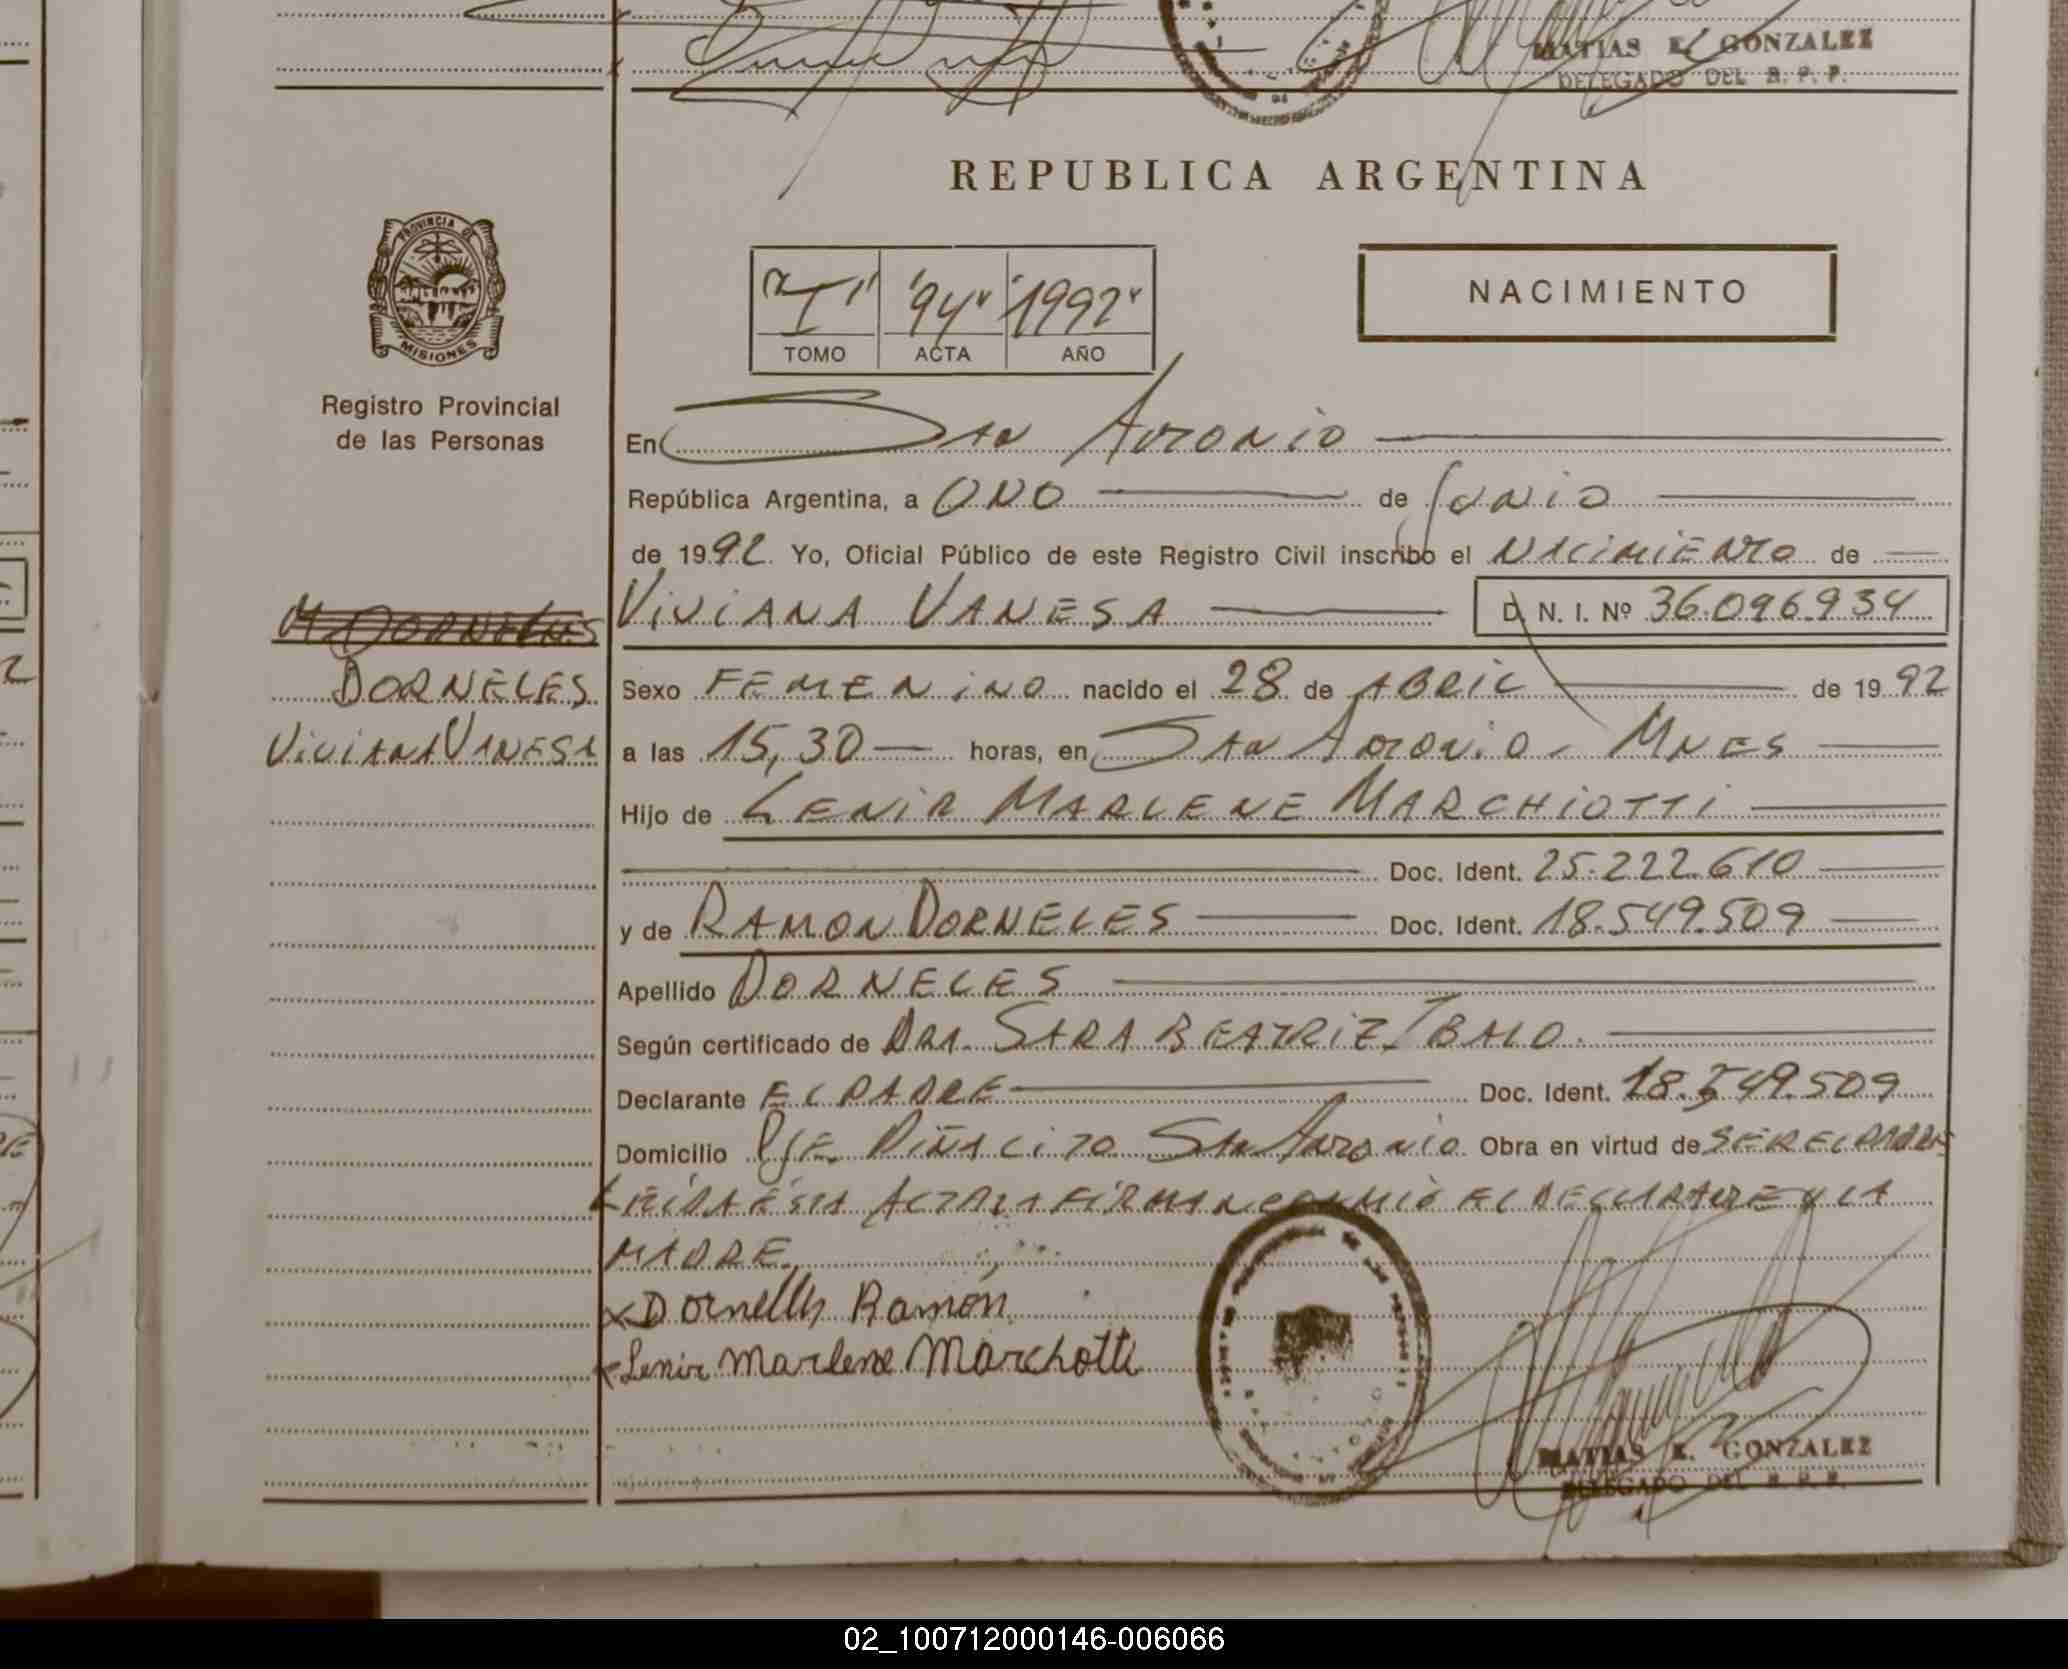 MATIAS E. GONZALEZ
DELEGADO DEL R. P. P.
REPUBLICA ARGENTINA
PROVINCIA DE
MISIONES
"I" "94" "1992"
TOMO ACTA AÑO
NACIMIENTO
Registro Provincial
de las Personas
En San Antonio
República Argentina, a UNO de Junio
de 1992. Yo, Oficial Público de este Registro Civil inscribo el NACIMIENTO de
M DORNELES
VIVIANA VANESA D. N. I. Nº 36.096.934
DORNELES
VIVIANA VANESA
Sexo FEMENINO nacido el 28 de ABRIL de 1992
a las 15,30 horas, en SAN ANTONIO - MNES
Hijo de LENIR MARLENE MARCHIOTTI
Doc. Ident. 25.222.610
y de RAMON DORNELES Doc. Ident. 18.549.509
Apellido DORNELES
Según certificado de DRA. SARA BEATRIZ TBALO.
Declarante EL PADRE Doc. Ident. 18.549.509
Domicilio Pje. PIÑALITO SAN ANTONIO Obra en virtud de SER EL PADRE
LEIDA ESTA ACTA LA FIRMAN CONMIGO EL DECLARANTE Y LA
MADRE.
x Dornelles Ramón
x Lenir Marlene Marchotti
MATIAS E. GONZALEZ
DELEGADO DEL R. P. P.
02_100712000146-006066